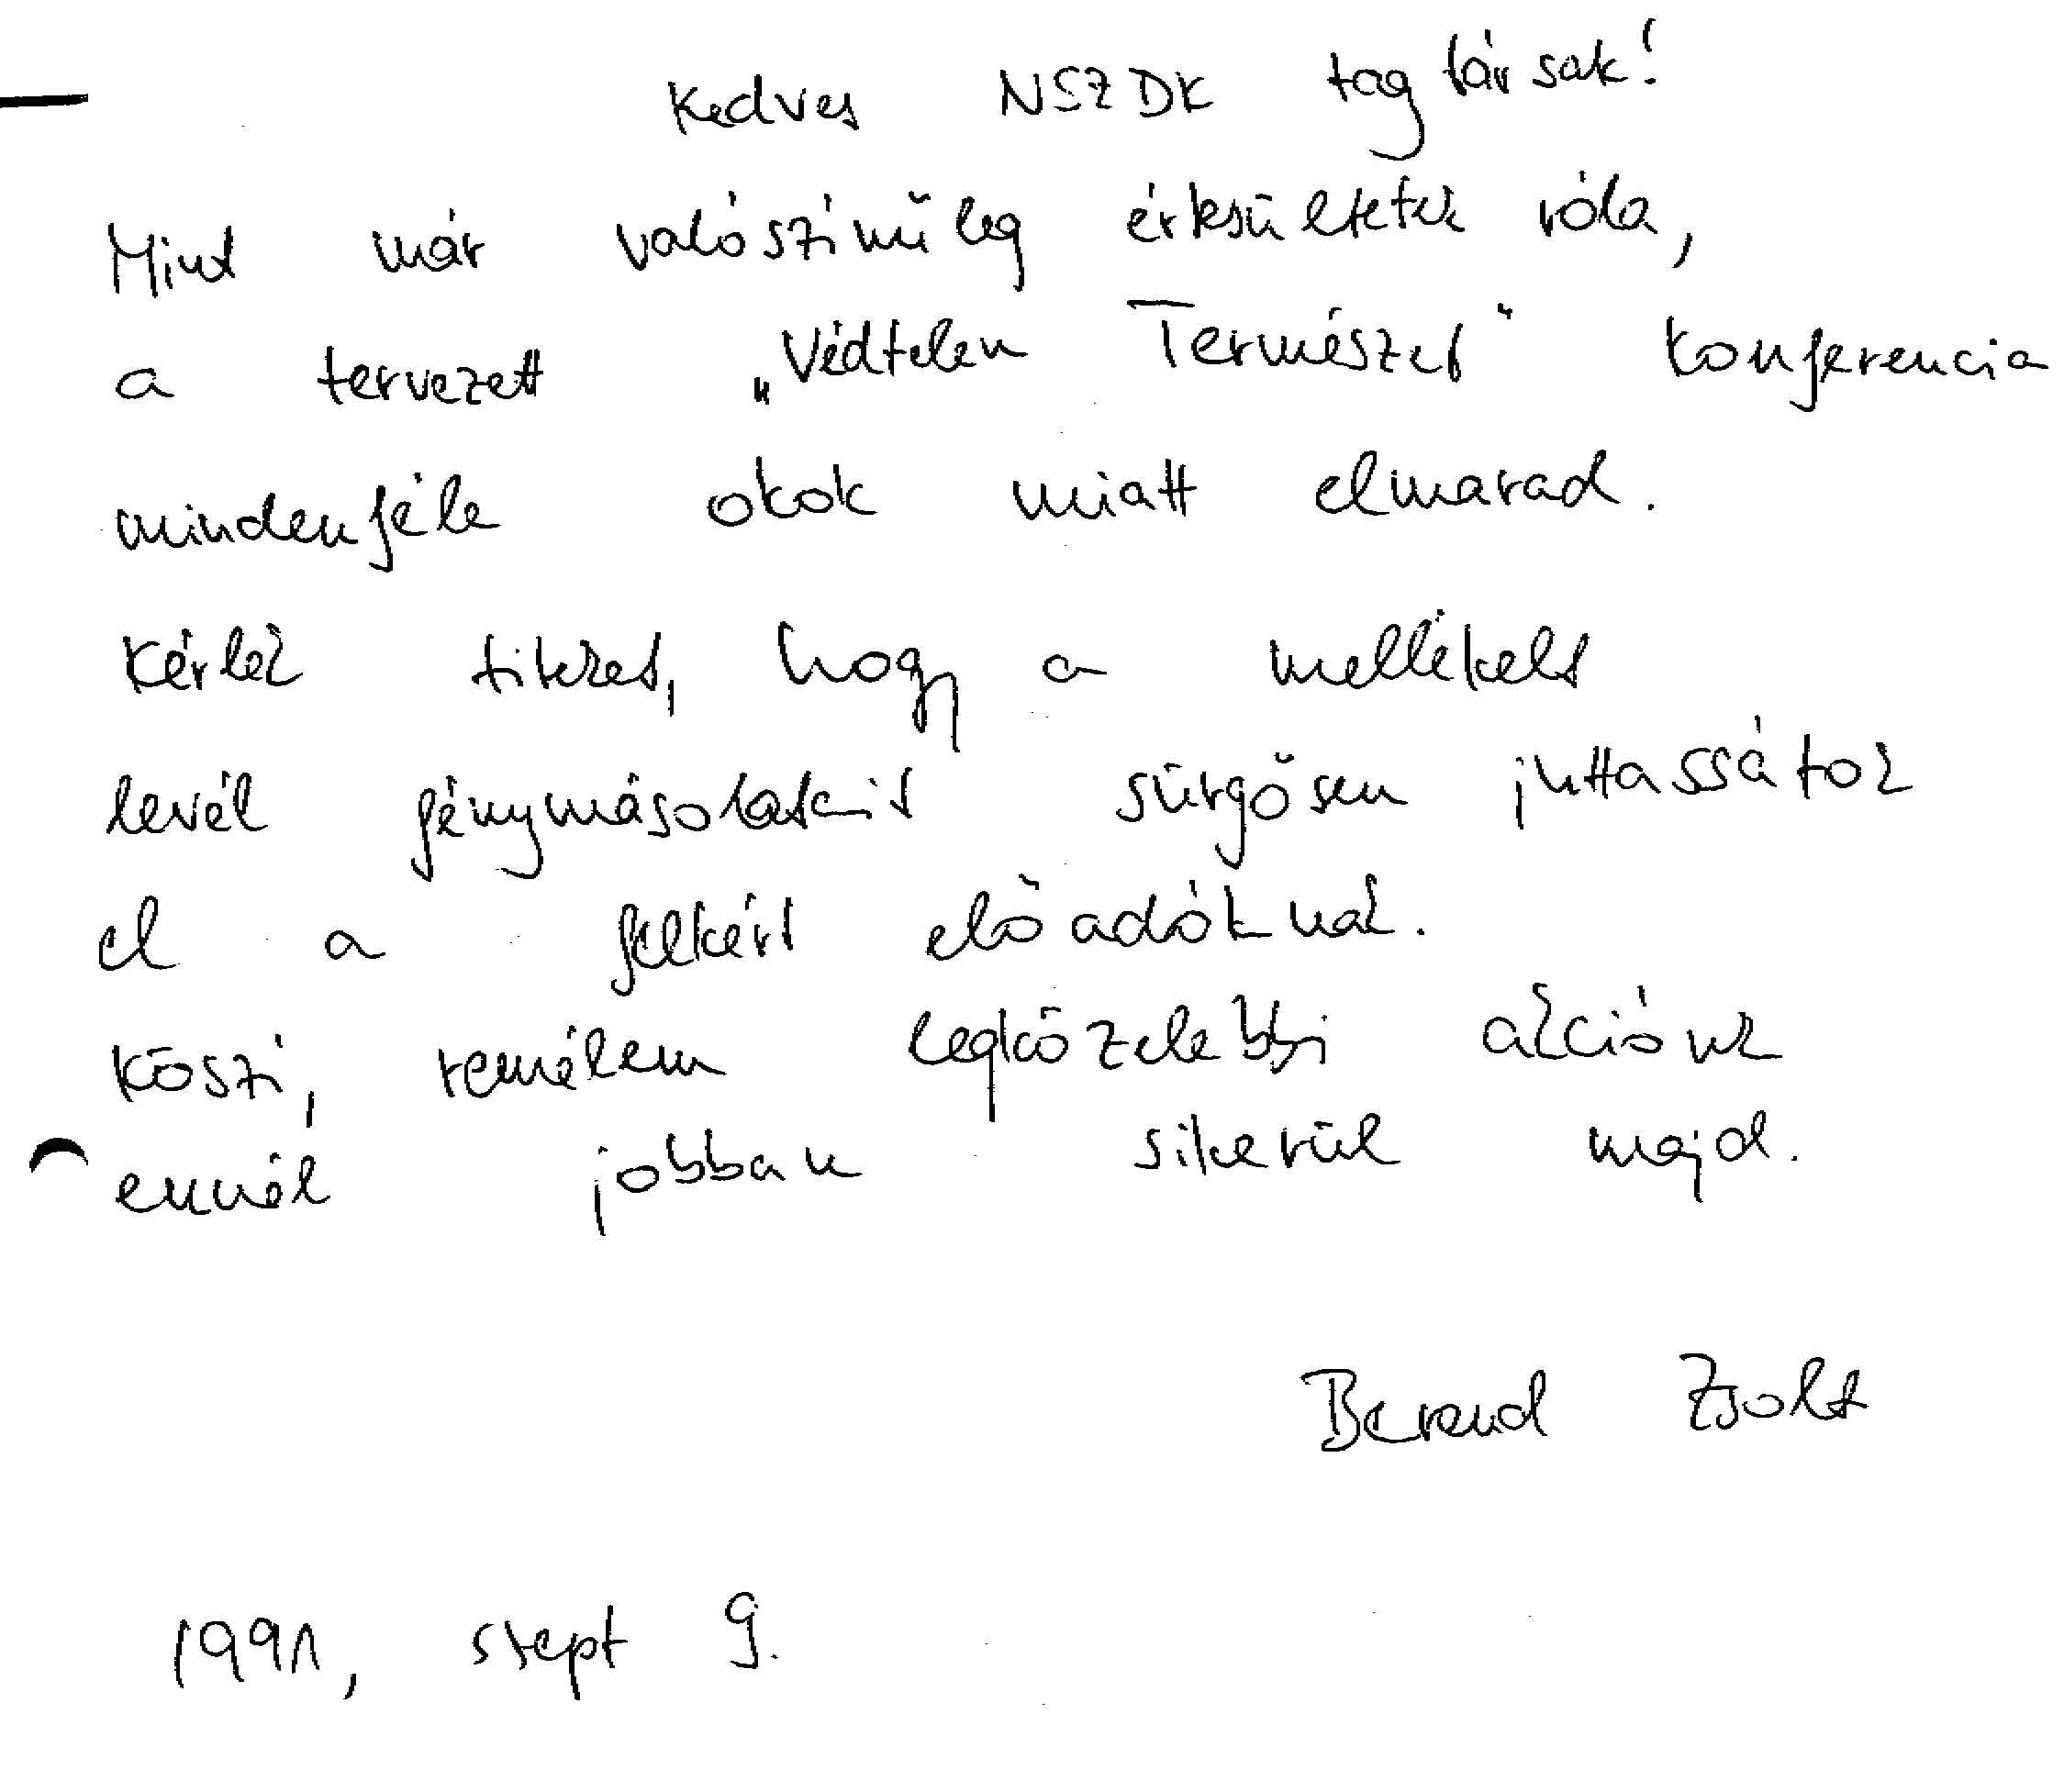 Kedves NSZDK tagtársak!
Mint már valószínűleg értesültetek róla,
a tervezett „Védtelen Természet" konferencia
mindenféle okok miatt elmarad.
Kérlek titeket, hogy a mellékelt
levél fénymásolatait sürgősen juttassátok
el a felkért előadóknak.
Köszi, remélem legközelebbi akciónk
ennél jobban sikerül majd.
Berend Zsolt
1991, szept 9.